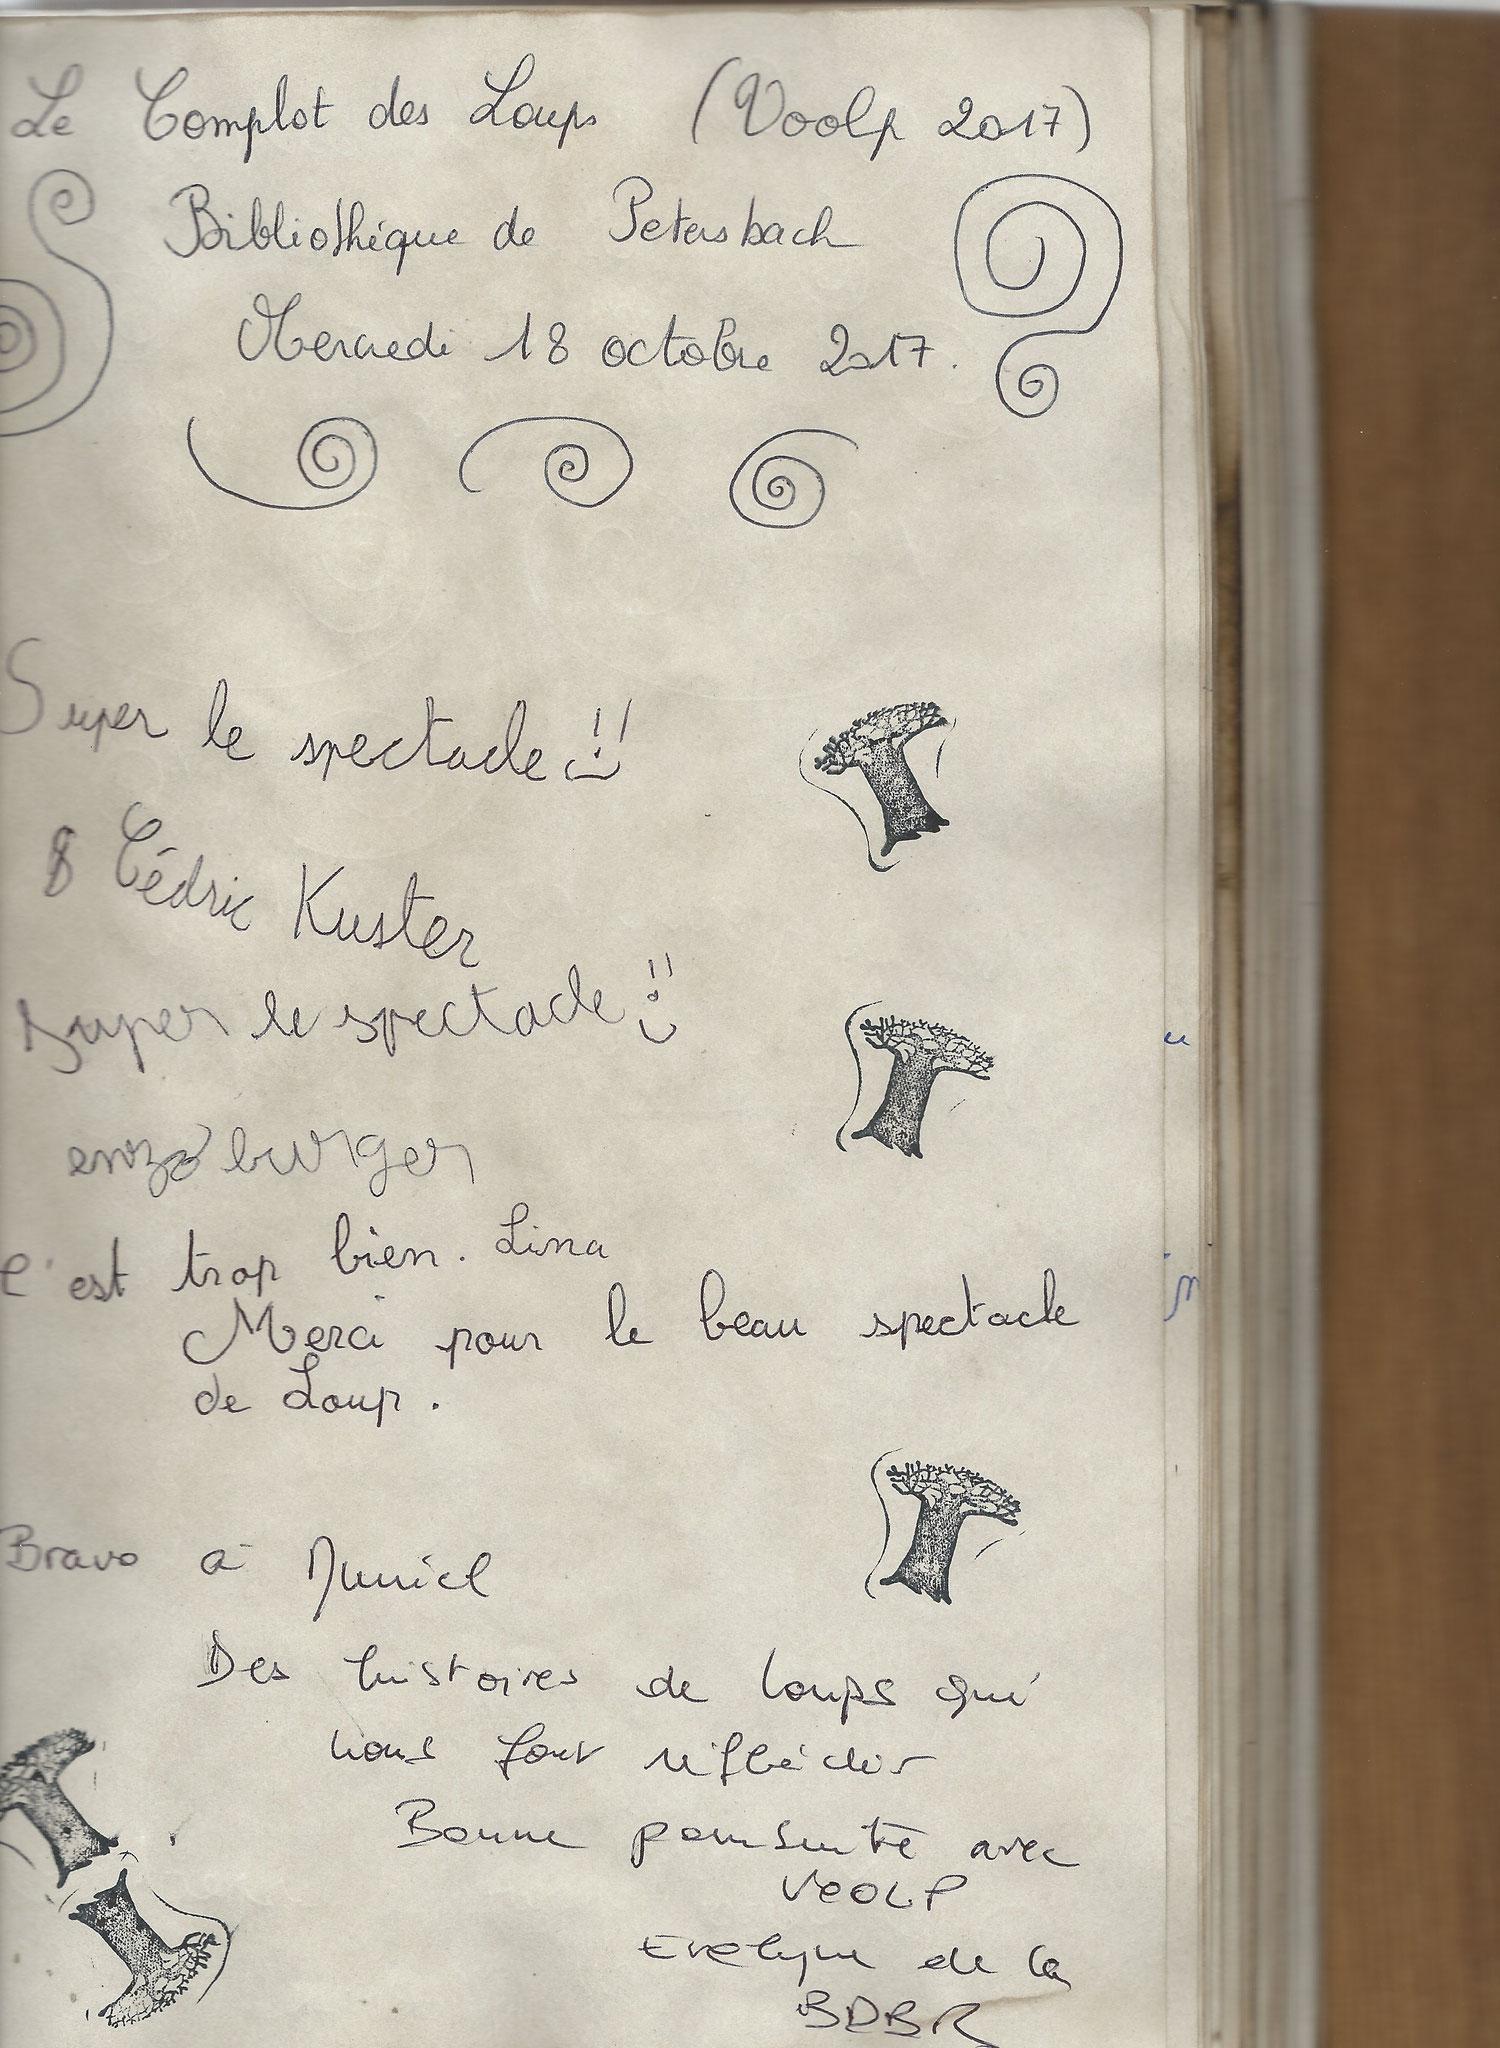 Le Complot des Loups (Voolp 2017)
Bibliothéque de Petersbach
Mercredi 18 octobre 2017.
Super le spectacle !!
8 Cédric Kuster
super le spectacle !!
enzo burger
C'est trop bien. Lina
Merci pour le beau spectacle
de Loup.
Bravo à Muriel
Des histoires de loups qui
nous font réfléchir
Bonne poursuite avec
VOOLP
Evelyne de la
BDBR